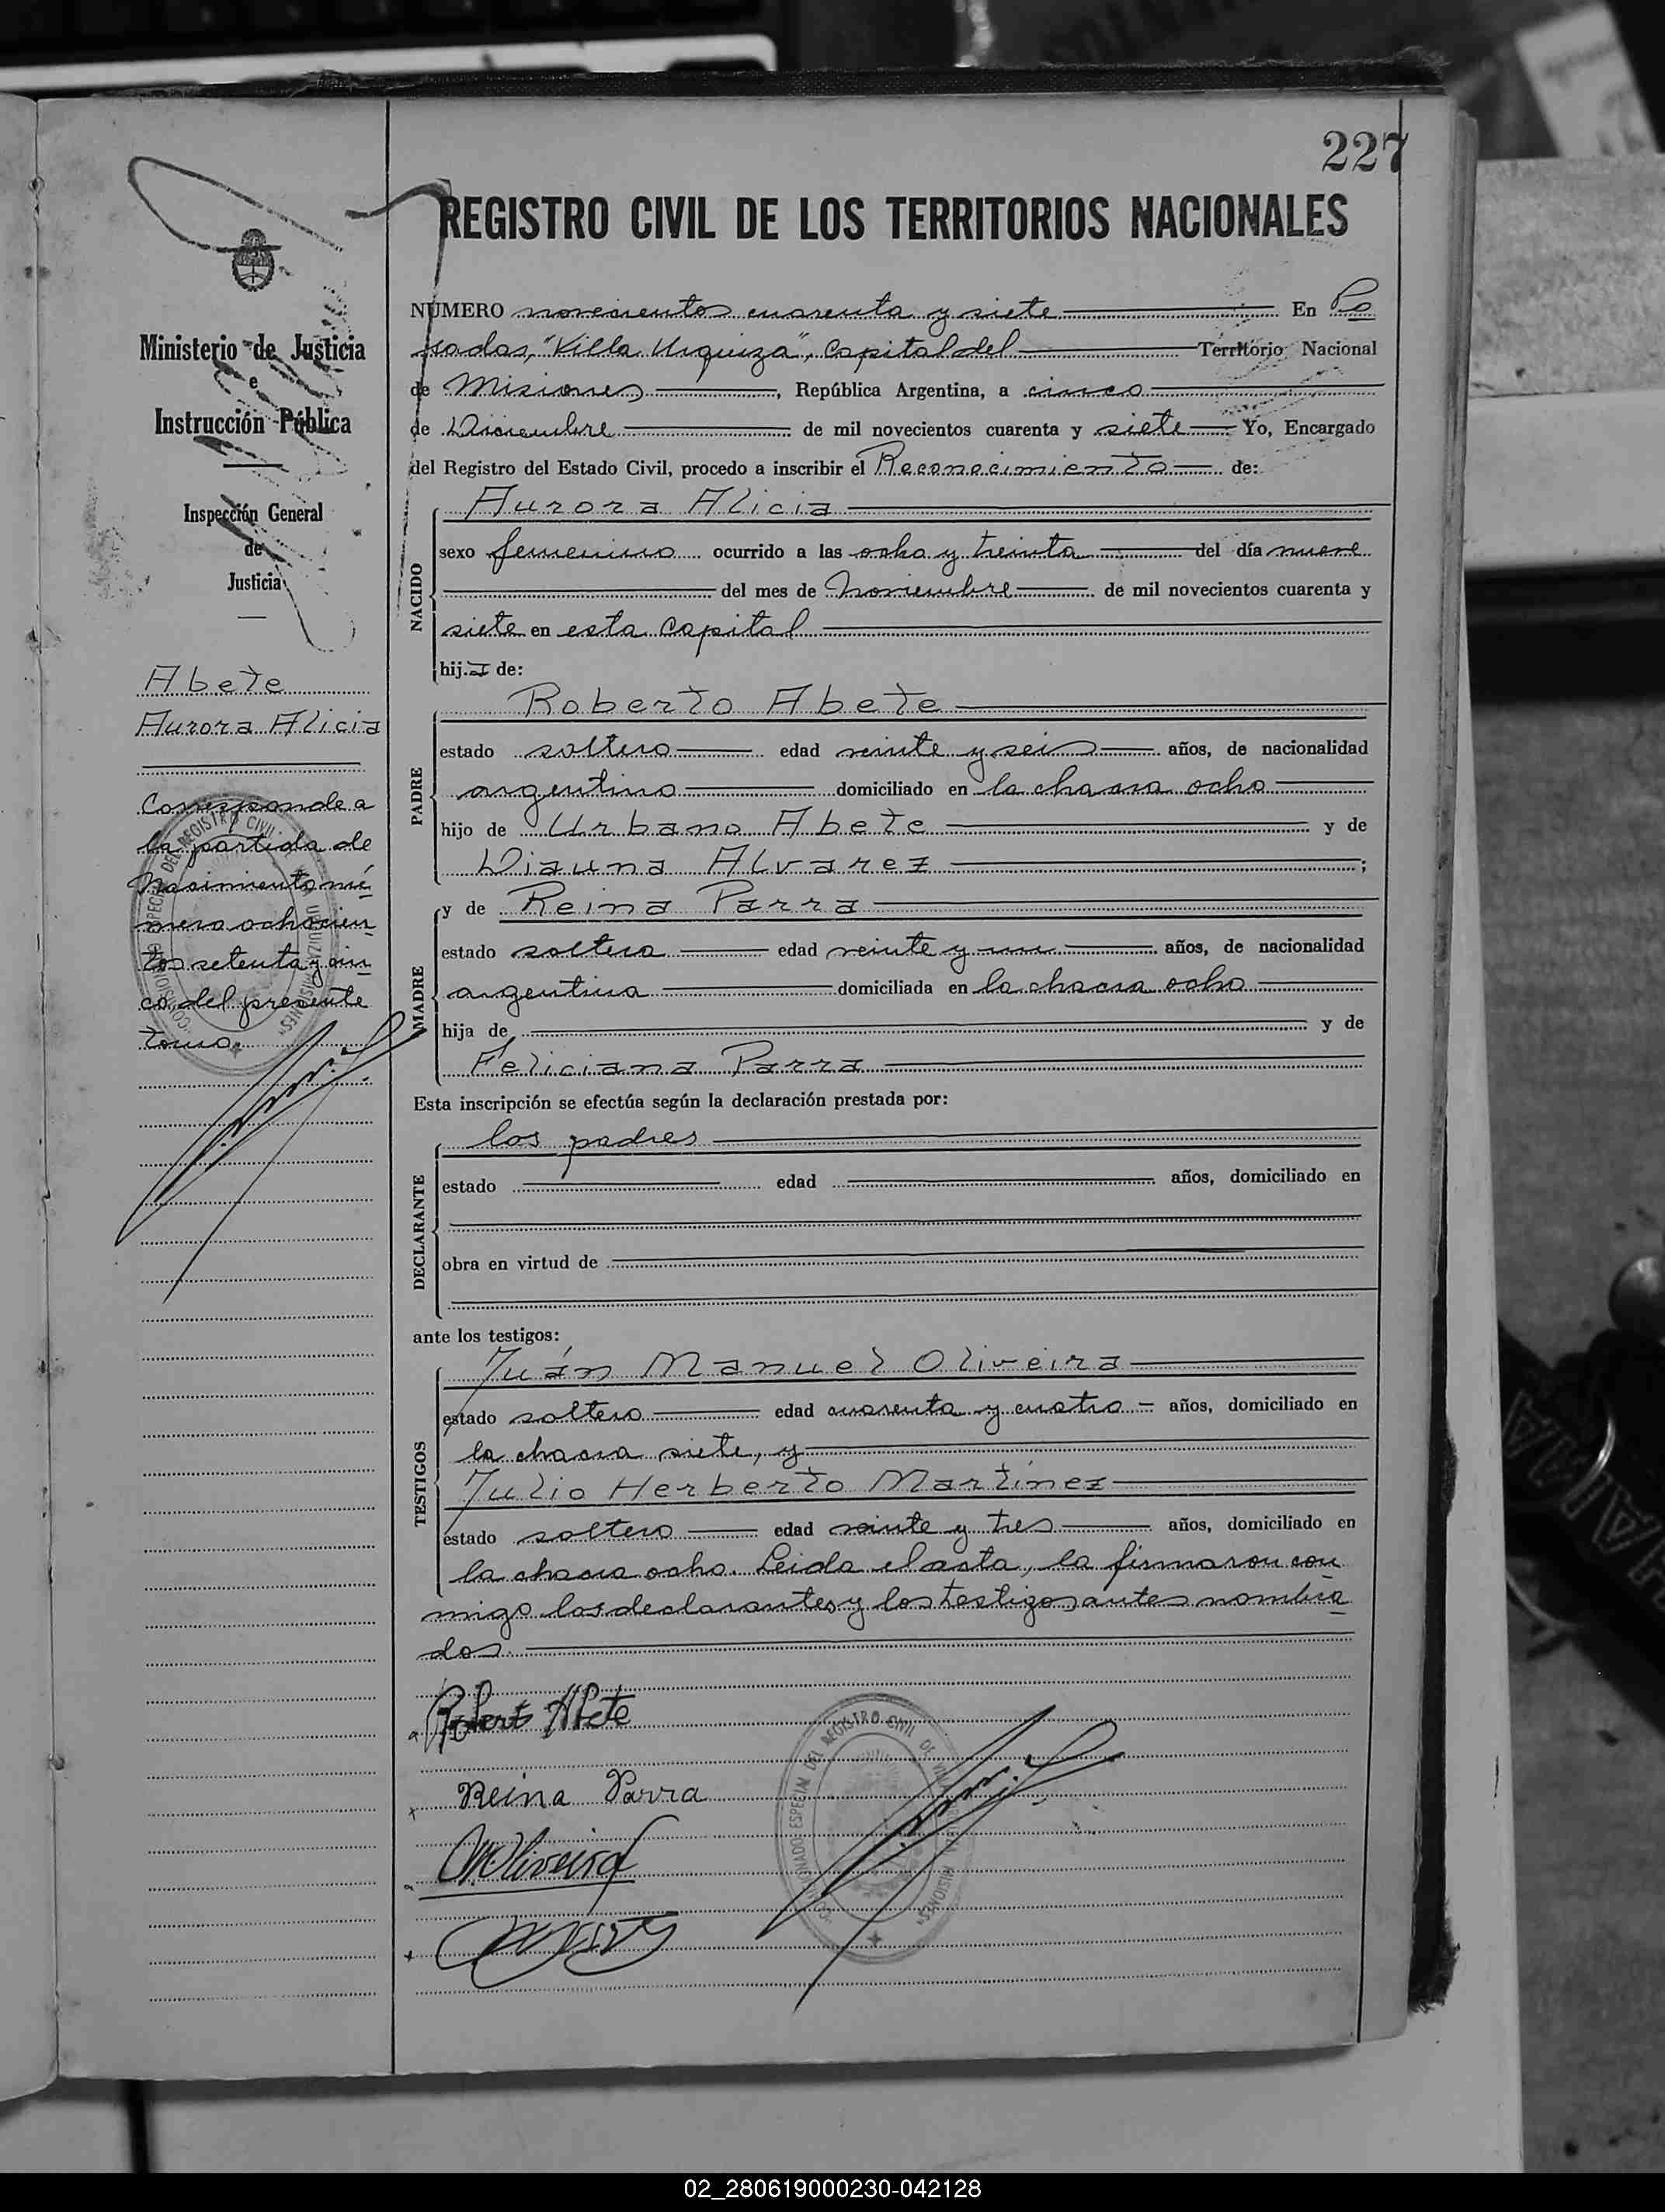 227
REGISTRO CIVIL DE LOS TERRITORIOS NACIONALES
Ministerio de Justicia
e
Instrucción Pública
Inspección General
de
Justicia
Abete
Aurora Alicia
Corresponde a
la partida de
Nacimiento nú
mero ochocien
tos setenta y cin
co del presente
tomo.
NÚMERO novecientos cuarenta y siete En Po
sadas, "Villa Urquiza", Capital del Territorio Nacional
de Misiones, República Argentina, a cinco
de Diciembre de mil novecientos cuarenta y siete Yo, Encargado
del Registro del Estado Civil, procedo a inscribir el Reconocimiento de:
NACIDO
Aurora Alicia
sexo femenino ocurrido a las ocho y treinta del día nueve
del mes de Noviembre de mil novecientos cuarenta y
siete en esta Capital
hij.a de:
PADRE
Roberto Abete
estado soltero edad veinte y seis años, de nacionalidad
argentino domiciliado en la chacra ocho
hijo de Urbano Abete y de
Diauna Alvarez ;
MADRE
y de Reina Parra
estado soltera edad veinte y un años, de nacionalidad
argentina domiciliada en la chacra ocho
hija de y de
Feliciana Parra
Esta inscripción se efectúa según la declaración prestada por:
DECLARANTE
los padres
estado edad años, domiciliado en
obra en virtud de
ante los testigos:
TESTIGOS
Juán Manuel Oliveira
estado soltero edad cuarenta y cuatro años, domiciliado en
la chacra siete, y
Julio Herberto Martínez
estado soltero edad veinte y tres años, domiciliado en
la chacra ocho. Leida el acta, la firmaron con
migo los declarantes y los testigos antes nombra
dos.
Roberto Abete
Reina Parra
Oliveira
02_280619000230-042128